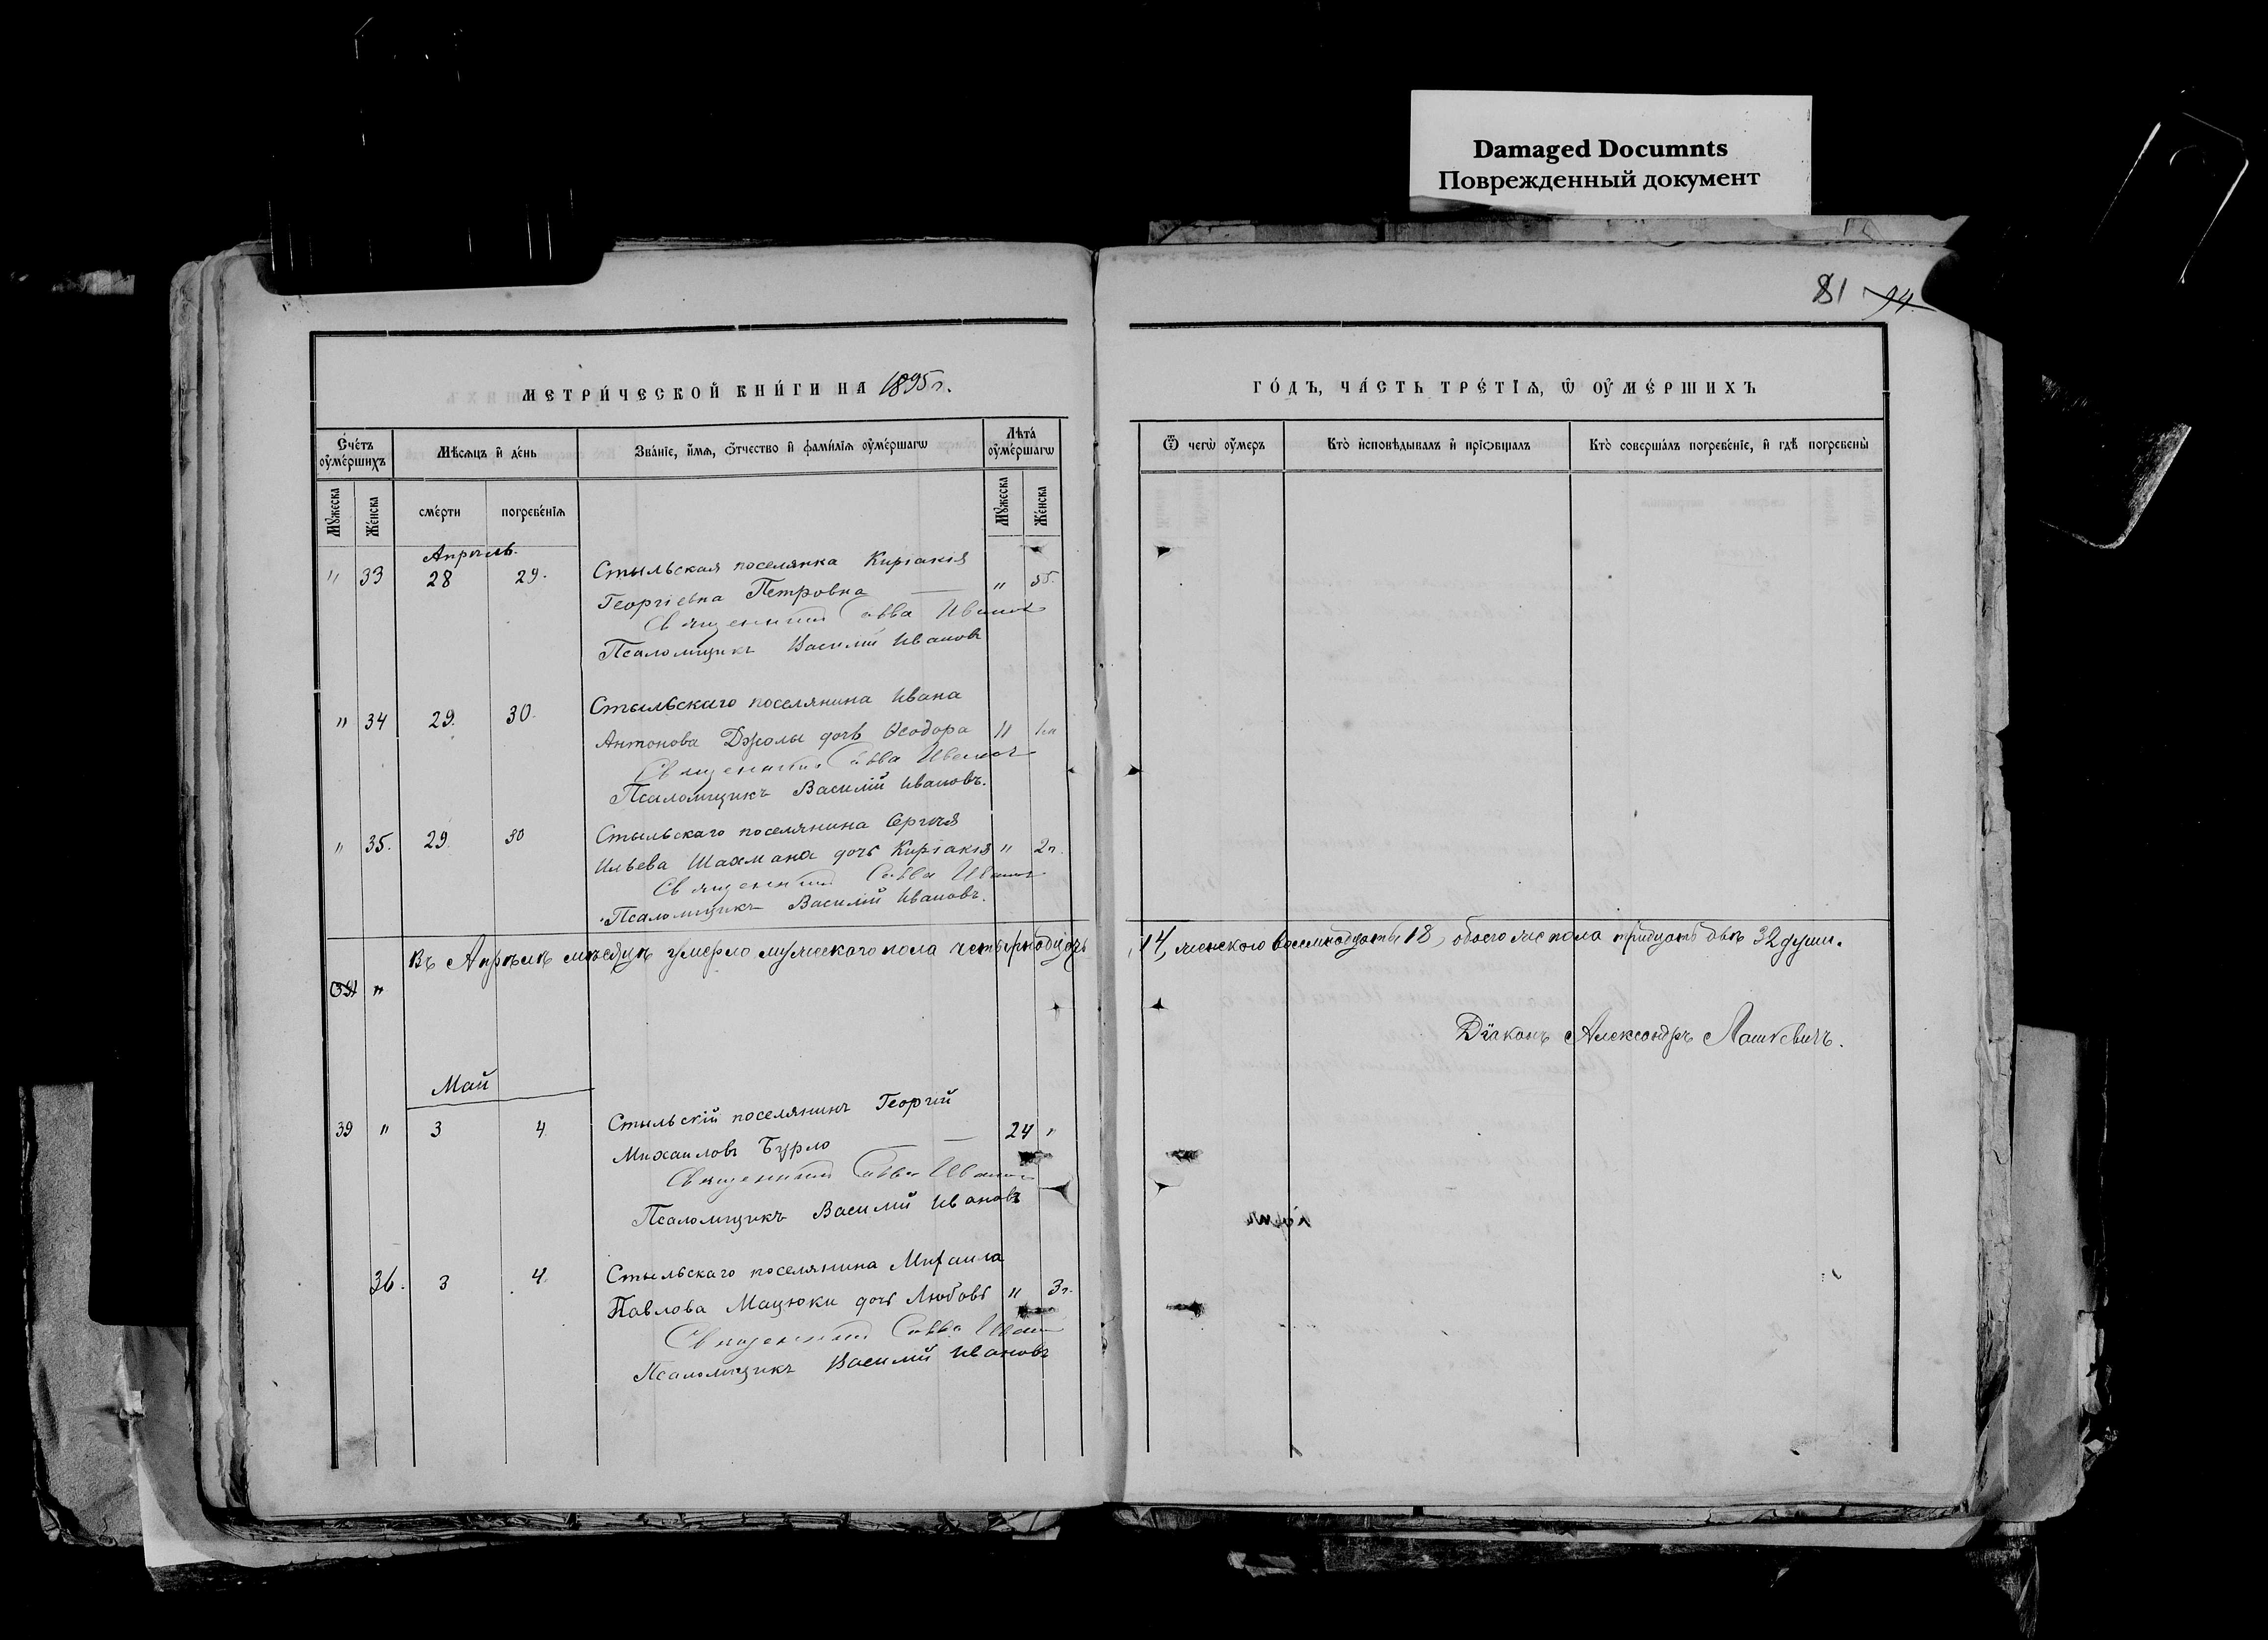 Damaged Documnts
Поврежденный документ
81 94.
МЕТРИ́ЧЕСКОЙ КНИ́ГИ НА 1895 г.
ГО́ДЪ, ЧА́СТЬ ТРЕ́ТІѦ, Ѡ ОУ҆МЕ́РШИХЪ
Сче́тъ оу҆ме́ршихъ
Мѣ́сѧцъ и҆ де́нь
Зва́нїе, и҆́мѧ, ѻ҆́тчество и҆ фами́лїѧ оу҆ме́ршагѡ
Лѣта̀ оу҆ме́ршагѡ
Ѿ чегѡ̀ оу҆́меръ
Кто̀ и҆сповѣ́дывалъ и҆ прїѻбща́лъ
Кто̀ соверша́лъ погребе́нїе, и҆ гдѣ̀ погребены̀
Мꙋ́жеска
Же́нска
сме́рти
погребе́нїѧ
Мꙋ́жеска
Же́нска
Апрѣль.
" 33 28 29. Стыльская поселянка Киріакія
Георгіевна Петровна "
Священникъ Савва Ивановъ
Псаломщикъ Василій Ивановъ
" 34 29. 30. Стыльскаго поселянина Ивана
Антонова Джолы дочь Ѳеодора "
Священникъ Савва Ивановъ
Псаломщикъ Василій Ивановъ.
" 35. 29. 30 Стыльскаго поселянина Сергѣя
Ильева Шахмана дочь Киріакія " 2 г.
Священникъ Савва Ивановъ
Псаломщикъ Василій Ивановъ.
Въ Апрѣлѣ мѣсяцѣ умерло мужескаго пола четырнадцать 14, женскаго восемнадцать 18, обоего же пола тридцать двѣ 32 души.
"
Діаконъ Александръ Лашкевичъ.
Май
39 " 3 4 Стыльскій поселянинъ Георгій
Михаиловъ Бурло 24 "
Священникъ Савва Ивановъ
Псаломщикъ Василій Ивановъ
36. 3 4. Стыльскаго поселянина Михаила
Павлова Мацюки дочь Любовь " 3 г.
Священникъ Савва Ивановъ
Псаломщикъ Василій Ивановъ